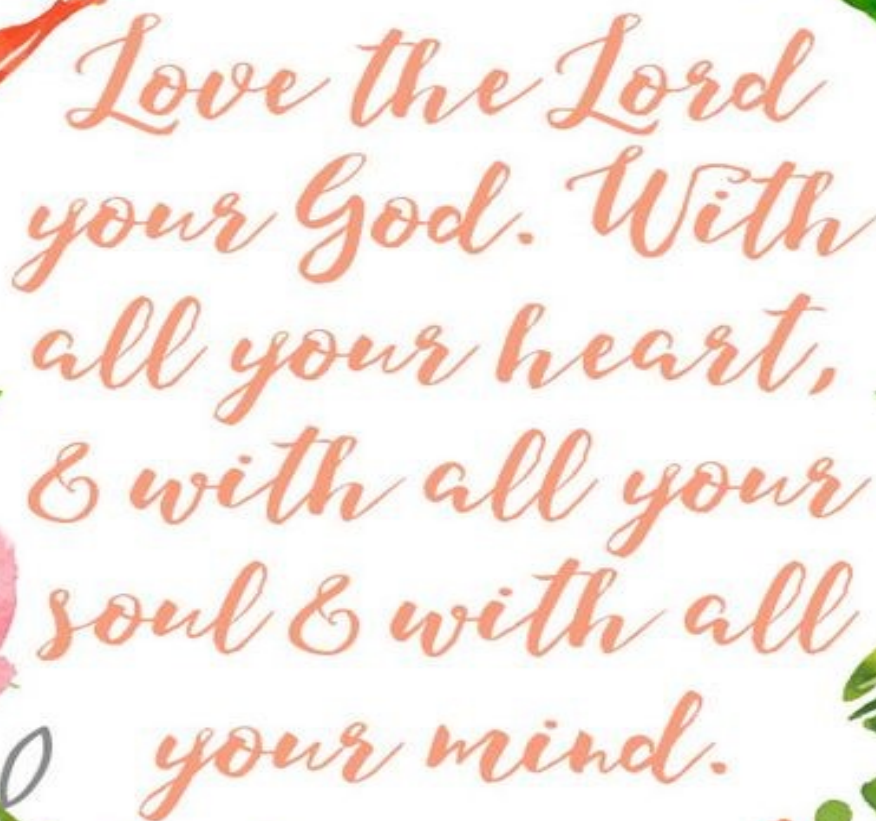 Love the Lord
your God. With
all your heart,
& with all your
soul & with all
your mind.